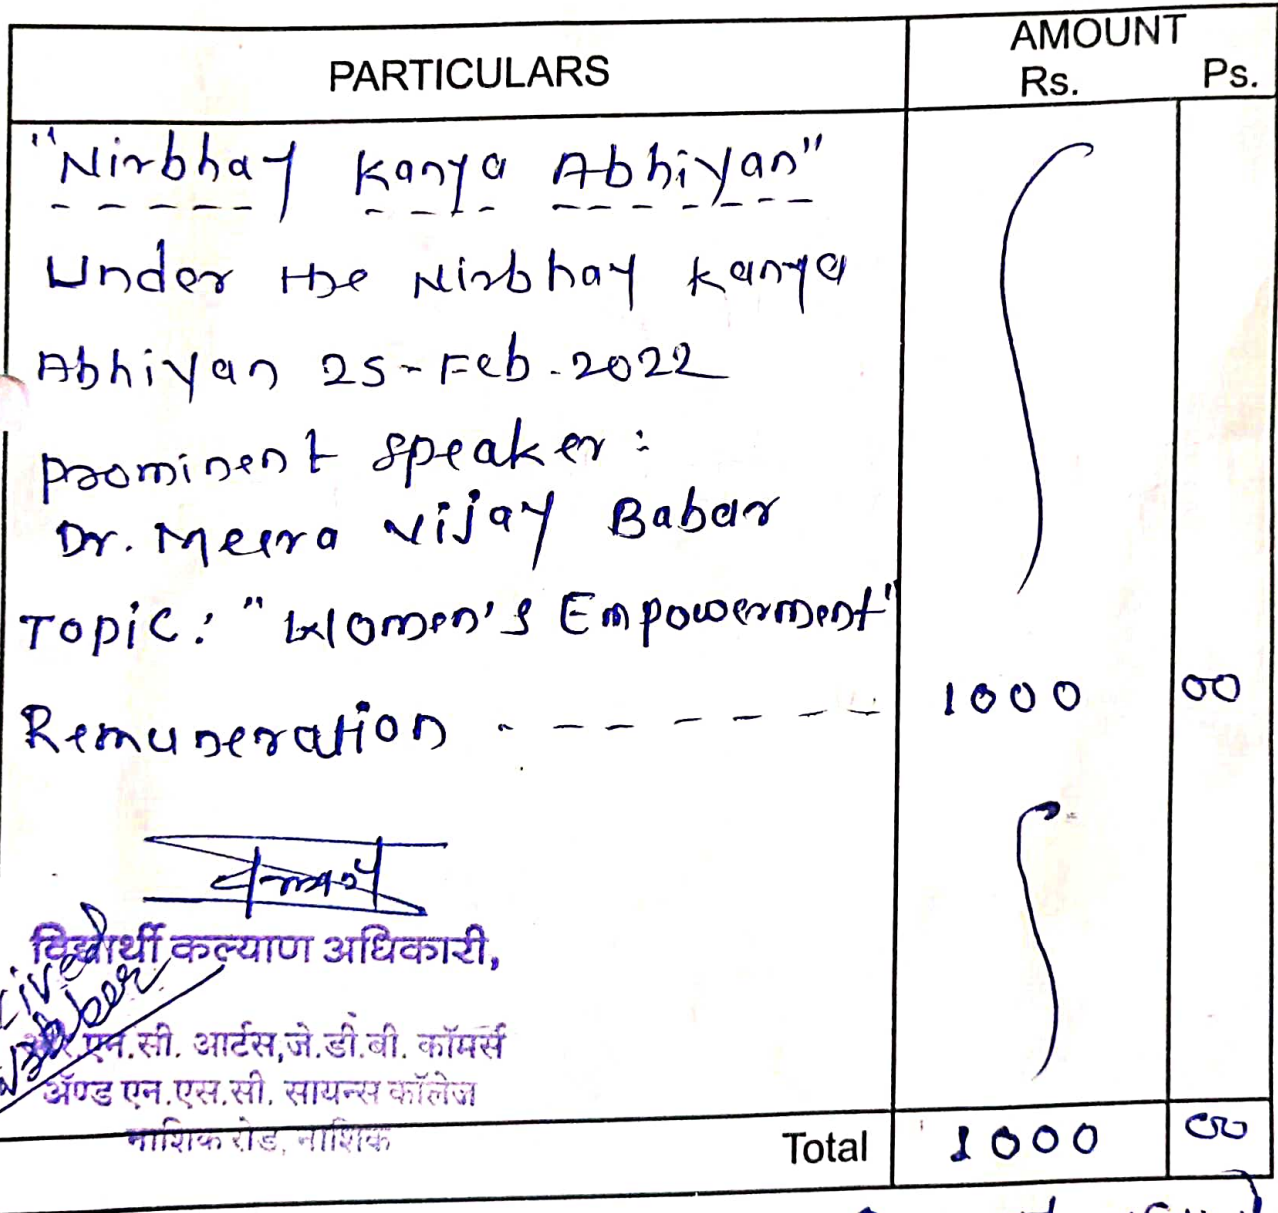 PARTICULARS
AMOUNT
Rs. Ps.
"Nirbhay Kanya Abhiyan"
Under the Nirbhay Kanya
Abhiyan 25-Feb-2022
Prominent Speaker:
Dr. Meera Vijay Babar
Topic: "Women's Empowerment"
Remuneration - - - - - - - 1000 00
विद्यार्थी कल्याण अधिकारी,
आर.एन.सी. आर्टस,जे.डी.बी. कॉमर्स
अ‍ॅण्ड एन.एस.सी. सायन्स कॉलेज
नाशिक रोड, नाशिक
Total 1000 00